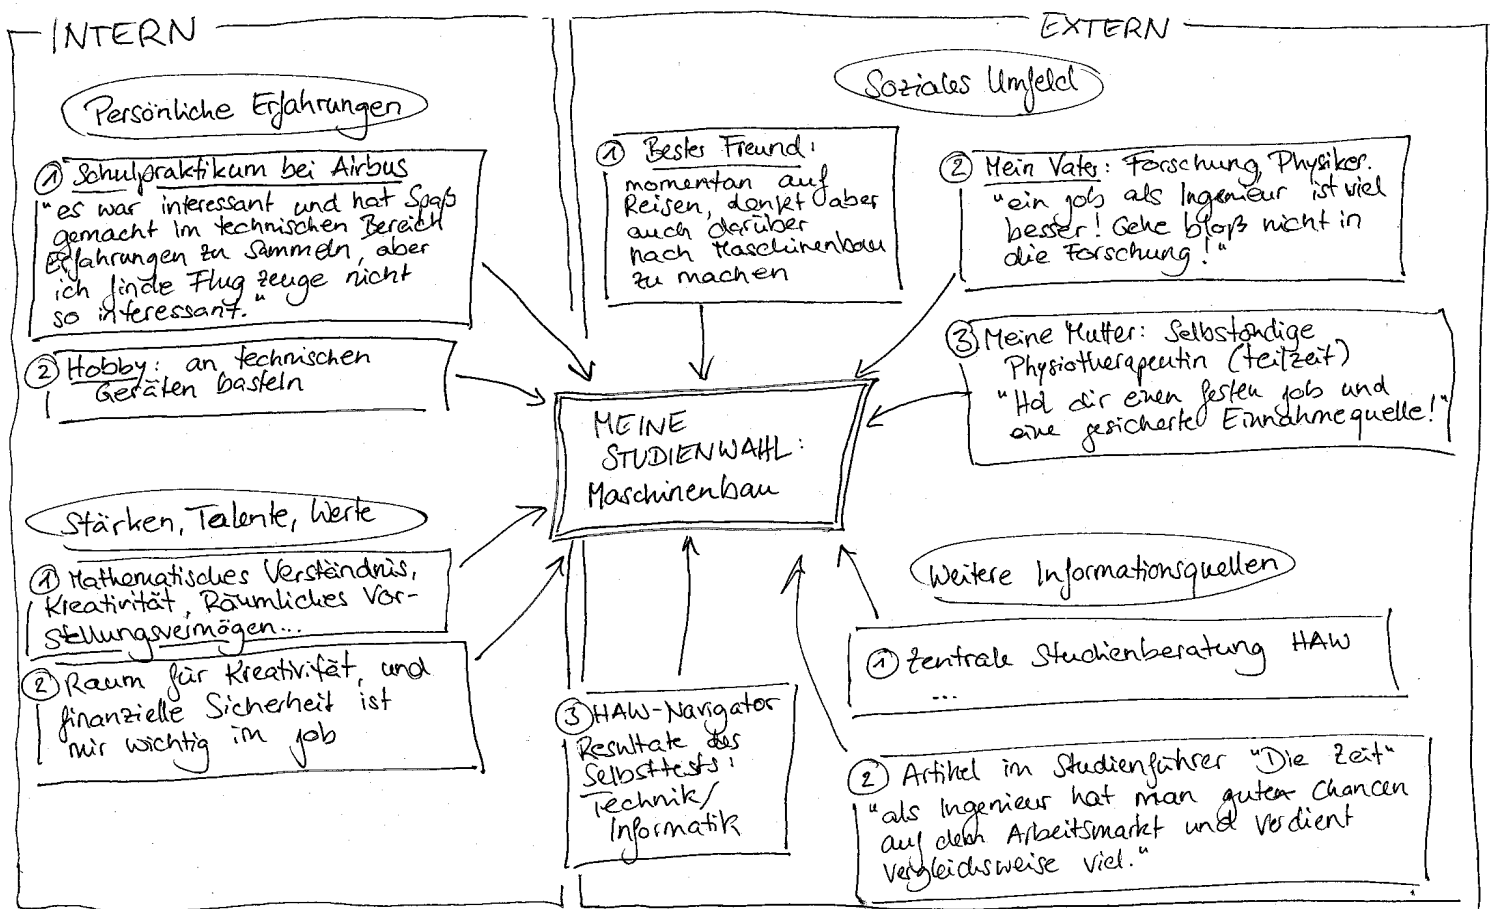 INTERN
Persönliche Erfahrungen
① Schulpraktikum bei Airbus
"es war interessant und hat Spaß
gemacht im technischen Bereich
Erfahrungen zu sammeln, aber
ich finde Flugzeuge nicht
so interessant."
② Hobby: an technischen
Geräten basteln
Stärken, Talente, Werte
① Mathematisches Verständnis,
Kreativität, Räumliches Vor-
stellungsvermögen...
② Raum für Kreativität, und
finanzielle Sicherheit ist
mir wichtig im Job
MEINE
STUDIENWAHL:
Maschinenbau
EXTERN
Soziales Umfeld
① Bester Freund:
momentan auf
Reisen, denkt aber
auch darüber
nach Maschinenbau
zu machen
② Mein Vater: Forschung, Physiker.
"ein Job als Ingenieur ist viel
besser! Gehe bloß nicht in
die Forschung!"
③ Meine Mutter: Selbständige
Physiotherapeutin (teilzeit)
"Hol dir einen festen Job und
eine gesicherte Einnahmequelle!"
Weitere Informationsquellen
① Zentrale Studienberatung HAW
...
② Artikel im Studienführer "Die Zeit"
"als Ingenieur hat man guten Chancen
auf dem Arbeitsmarkt und verdient
vergleichsweise viel."
③ HAW-Navigator
Resultate des
Selbsttests:
Technik/
Informatik